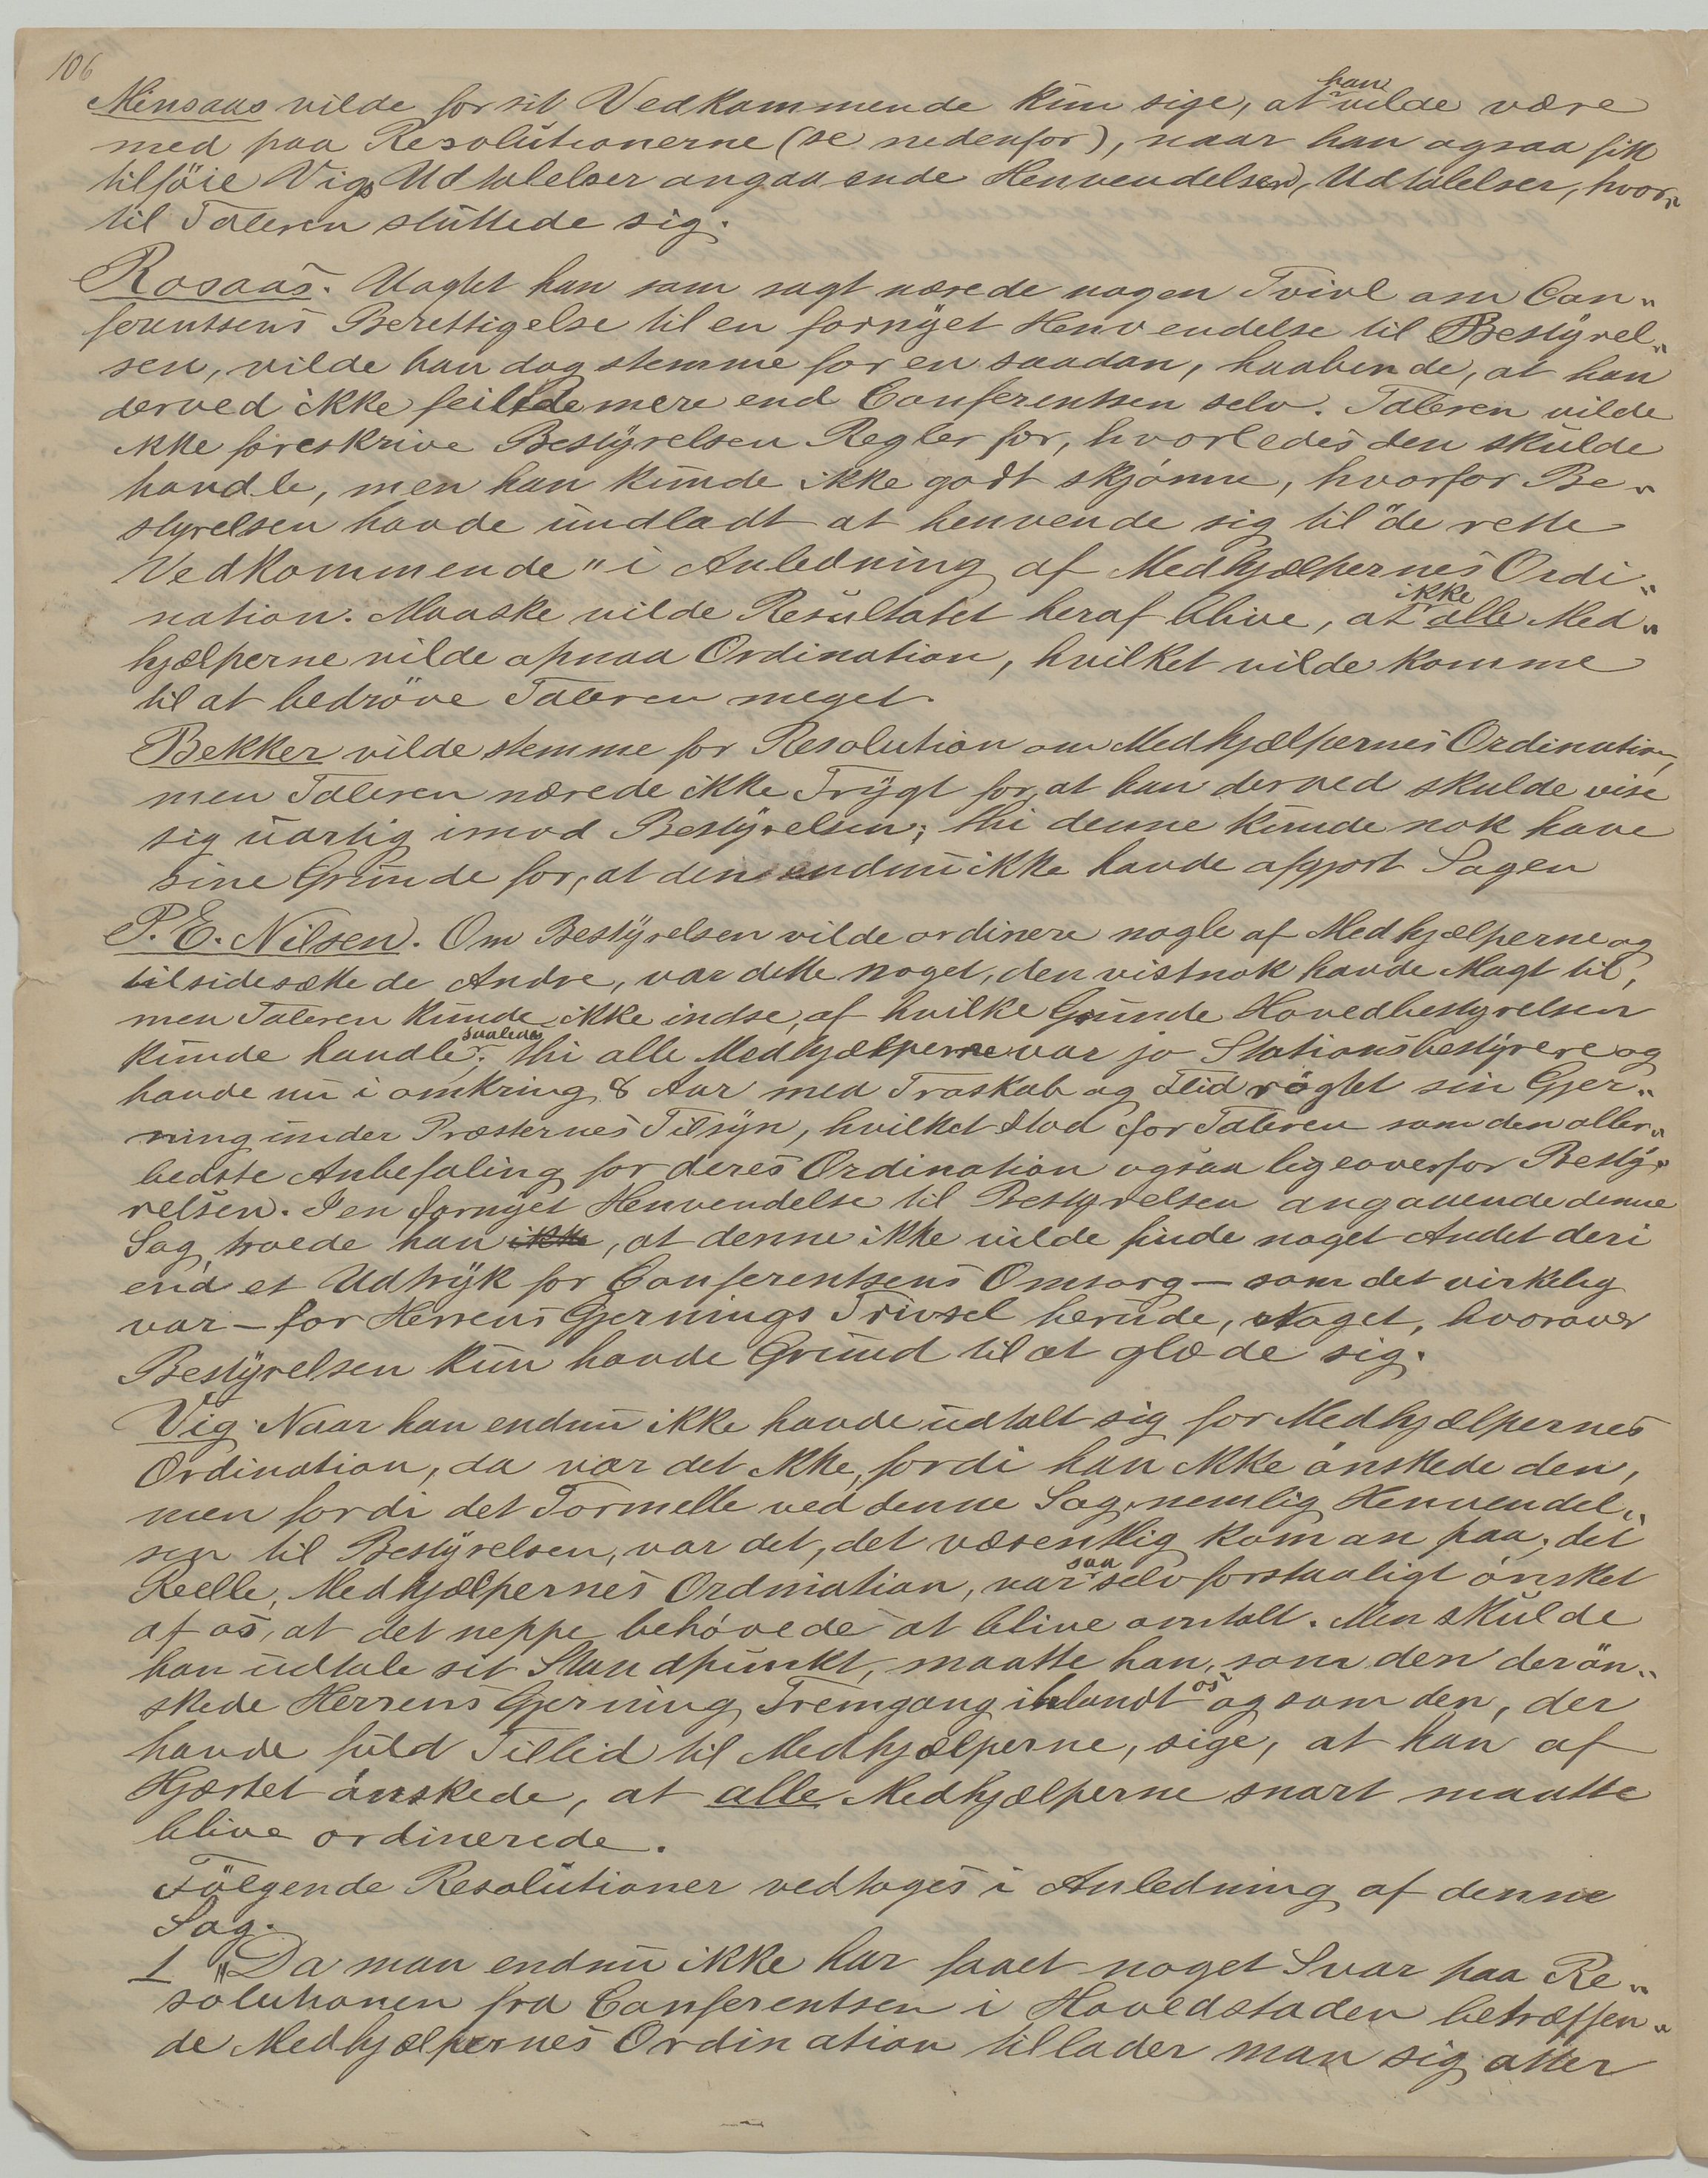 106
Minsaas vilde for sit Vedkommende kun sige, at han vilde være
med paa Resolutionerne (se nedenfor), naar han ogsaa fik
tilföie Vigs Udtalelser angaaende Henvendelsen, Udtalelser, hvor„
til Taleren sluttede sig.
Rosaas. Uagtet han som sagt nærede nogen Tvivl om Con„
ferentsens Berettigelse til en fornyet Henvendelse til Bestyrel„
sen, vilde han dog stemme for en saadan, haabende, at han
derved ikke feilede mere end Conferentsen selv. Taleren vilde
ikke foreskrive Bestyrelsen Regler for, hvorledes den skulde
handle, men han kunde ikke godt skjönne, hvorfor Be„
styrelsen havde undladt at henvende sig til "de rette
Vedkommende" i Anledning af Medhjælpernes Ordi„
nation. Maaske vilde Resultatet heraf blive, at ikke alle Med„
hjælperne vilde opnaa Ordination, hvilket vilde komme
til at bedröve Taleren meget.
Bekker vilde stemme for Resolution om Medhjælpernes Ordination,
men Taleren nærede ikke Frygt for, at han derved skulde vise
sig uartig imod Bestyrelsen; thi denne kunde nok have
sine Grunde for, at den endnu ikke havde afgjort Sagen
P. E. Nilsen. Om Bestyrelsen vilde ordinere nogle af Medhjælperne og
tilsidesætte de Andre, var dette noget, den vistnok havde Magt til,
men Taleren kunde ikke indse, af hvilke Grunde Hovedbestyrelsen
kunde handle saaledes; thi alle Medhjælperne var jo Stationsbestyrere og
havde nu i omkring 8 Aar med Troskab og Flid rögtet sin Gjer„
ning under Præsternes Tilsyn, hvilket stod for Taleren som den aller„
bedste Anbefaling for deres Ordination ogsaa ligeoverfor Besty„
relsen. I en fornyet Henvendelse til Bestyrelsen angaaende denne
Sag, troede han ikke, at denne ikke vilde finde noget Andet deri
end et Udtryk for Conferentsens Omsorg – som det virkelig
var – for Herrens Gjernings Trivsel herude, Noget, hvorover
Bestyrelsen kun havde Grund til at glæde sig.
Vig. Naar han endnu ikke havde udtalt sig for Medhjælpernes
Ordination, da var det ikke, fordi han ikke önskede den,
men fordi det Formelle ved denne Sag, nemlig Henvendel„
sen til Bestyrelsen, var det, det væsentlig kom an paa; det
Reelle, Medhjælpernes Ordination, var saa selvforstaaligt önsket
af os, at det neppe behövede at blive omtalt. Men skulde
han udtale sit Standpunkt, maatte han, som den der ön„
skede Herrens Gjerning Fremgang iblandt os og som den, der
havde fuld Tillid til Medhjælperne, sige, at han af
Hjærtet önskede, at alle Medhjælperne snart maatte
blive ordinerede.
Fölgende Resolutioner vedtoges i Anledning af denne
Sag.
1 „Da man endnu ikke har faaet noget Svar paa Re„
solutionen fra Conferentsen i Hovedstaden betræffen„
de Medhjælpernes Ordination tillader man sig atter